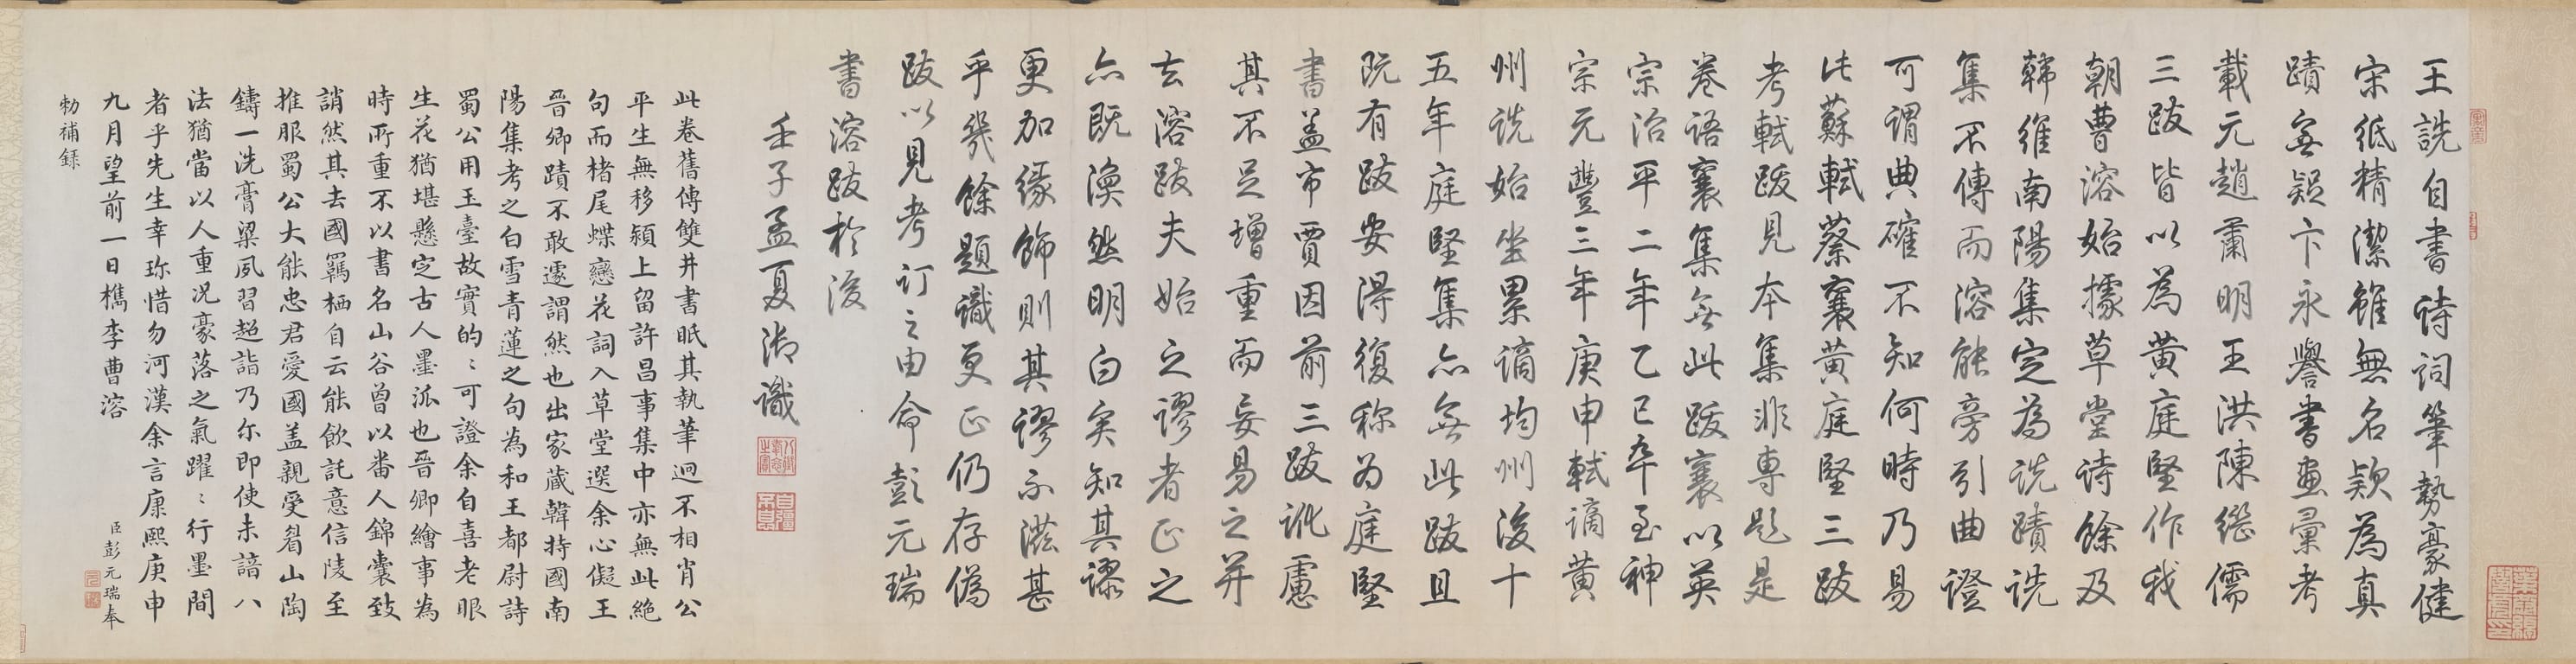 王詵自書詩詞筆勢豪健
宋紙精潔雖無名款為真
蹟無疑卞永譽書畫彙考
載元趙肅明王洪陳繼儒
三跋皆以為黃庭堅作我
朝曹溶始據草堂詩餘及
韓維南陽集定為詵蹟詵
集不傳而溶能旁引曲證
可謂典確不知何時乃易
此蘇軾蔡襄黃庭堅三跋
考軾跋見本集非專題是
卷語襄集無此跋襄以英
宗治平二年乙巳卒至神
宗元豐三年庚申軾謫黃
州詵始坐累謫均州後十
五年庭堅集亦無此跋且
既有跋安得復稱為庭堅
書蓋市賈因前三跋訛慮
其不足增重而妄易之并
去溶跋夫始之謬者正之
亦既渙然明白矣知其謬
更加緣飾則其謬不滋甚
乎幾餘題識更正仍存偽
跋以見考訂之由命彭元瑞
書溶跋於後
壬子孟夏御識
此卷舊傳雙井書眂其執筆迥不相肖公
平生無移潁上留許昌事集中亦無此絕
句而楮尾蝶戀花詞入草堂選余心儗王
晉卿蹟不敢遽謂然也出家藏韓持國南
陽集考之白雪青蓮之句為和王都尉詩
蜀公用玉臺故實的〻可證余自喜老眼
生花猶堪懸定古人墨派也晉卿繪事為
時所重不以書名山谷曾以番人錦囊致
誚然其去國羈栖自云能飲託意信陵至
推服蜀公大能忠君愛國蓋親受眉山陶
鑄一洗膏粱夙習超詣乃尓即使未諳八
法猶當以人重況豪落之氣躍〻行墨間
者乎先生幸珍惜勿河漢余言康熙庚申
九月望前一日檇李曹溶
臣彭元瑞奉
勅補錄